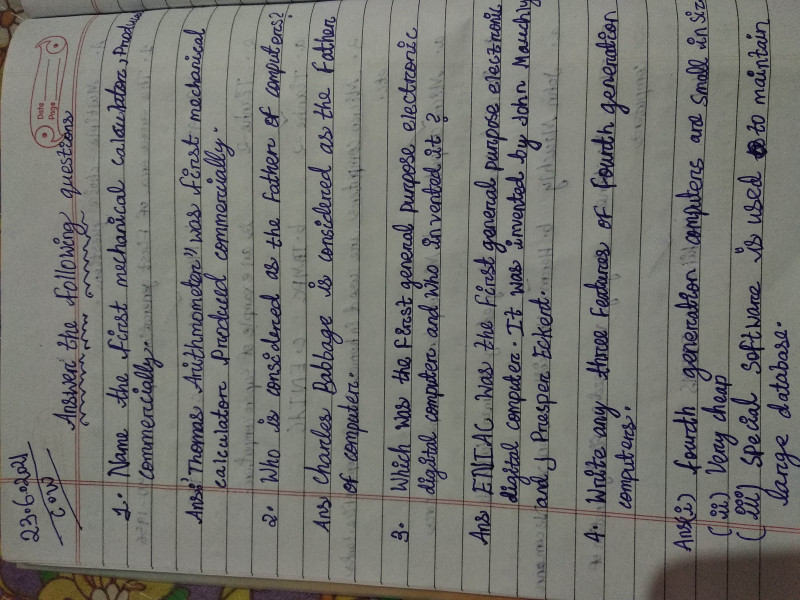 Date
Page
23.6.2021
C.W
Answer the following questions
1. Name the first mechanical calculator, Produced
commercially.
Ans: "Thomas Arithmometer" was first mechanical
calculator produced commercially.
2. Who is considered as the father of computers?
Ans Charles Babbage is considered as the Father
of computer.
3. Which was the first general purpose electronic
digital computer and who invented it?
Ans ENIAC was the first general purpose electronic
digital computer. It was invented by John Mauchly
and J Presper Eckert.
4. Write any three features of fourth generation
computers.
Ans(i) fourth generation computers are small in size
(ii) Very cheap
(iii) Special software is used to maintain
large database.